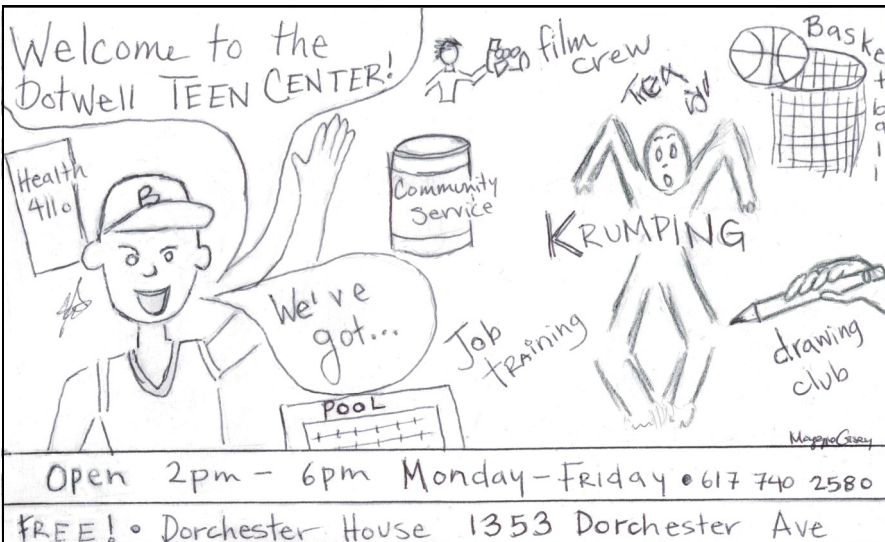 Welcome to the
DotWell TEEN CENTER!
film
crew
Basketball
Health
411.
B
Community
Service
KRUMPING
We've
got...
Job
TRAINING
drawing
club
POOL
Open 2pm - 6pm Monday-Friday • 617 740 2580
FREE! • Dorchester House 1353 Dorchester Ave